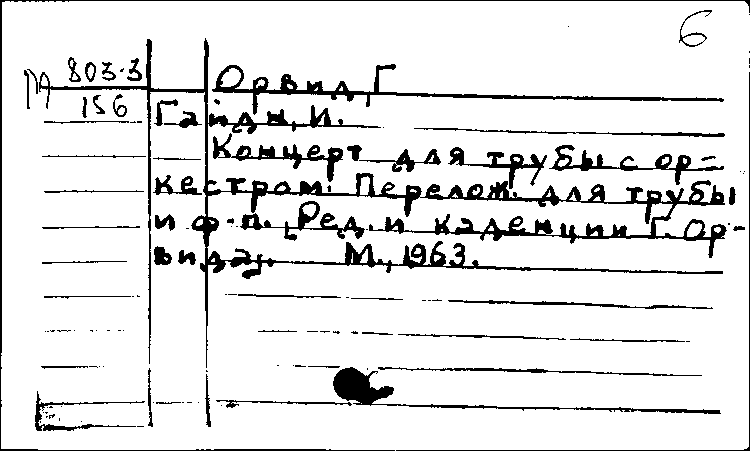 6
ПА 803-3
156
Орвид, Г
Гайдн, И.
Концерт для трубы с ор-
кестром. Перелож. для трубы
и ф-п., Ред. и каденции Г. Ор-
вида. М., 1963.